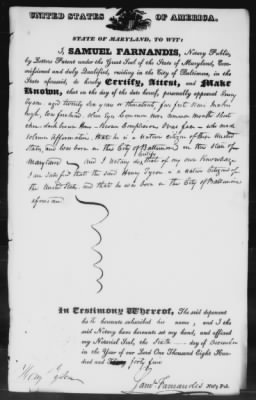 UNITED STATES OF AMERICA.
STATE OF MARYLAND, TO WIT:
I, SAMUEL FARNANDIS, Notary Public,
by Letters Patent under the Great Seal of the State of Maryland, Com-
missioned and duly Qualified, residing in the City of Baltimore, in the
State aforesaid, do hereby Certify, Attest, and Make
Known, that on the day of the date hereof, personally appeared Henry
Tyson aged twenty six years or thereabout, five feet nine inches
high, low forehead blue eyes Common nose mouth Short
chin, dark brown Hair Brown Complexion Oval face who made
solemn Affirmation that he is a native citizen of these United
States, and was born in the City of Baltimore in the State of
Maryland and I notary do certify of my own knowledge
I am satisfied that the said Henry Tyson is a native Citizen of
the United States, and that he was born in the City of Baltimore
aforesaid
In Testimony Whereof, The said deponent
hath hereunto subscribed his name, and I the
said Notary have hereunto set my hand, and affixed
my Notarial Seal, the Sixth day of
in the Year of our Lord One Thousand Eight Hun-
dred and forty five
Henry Tyson
Saml Farnandis Noty Pub